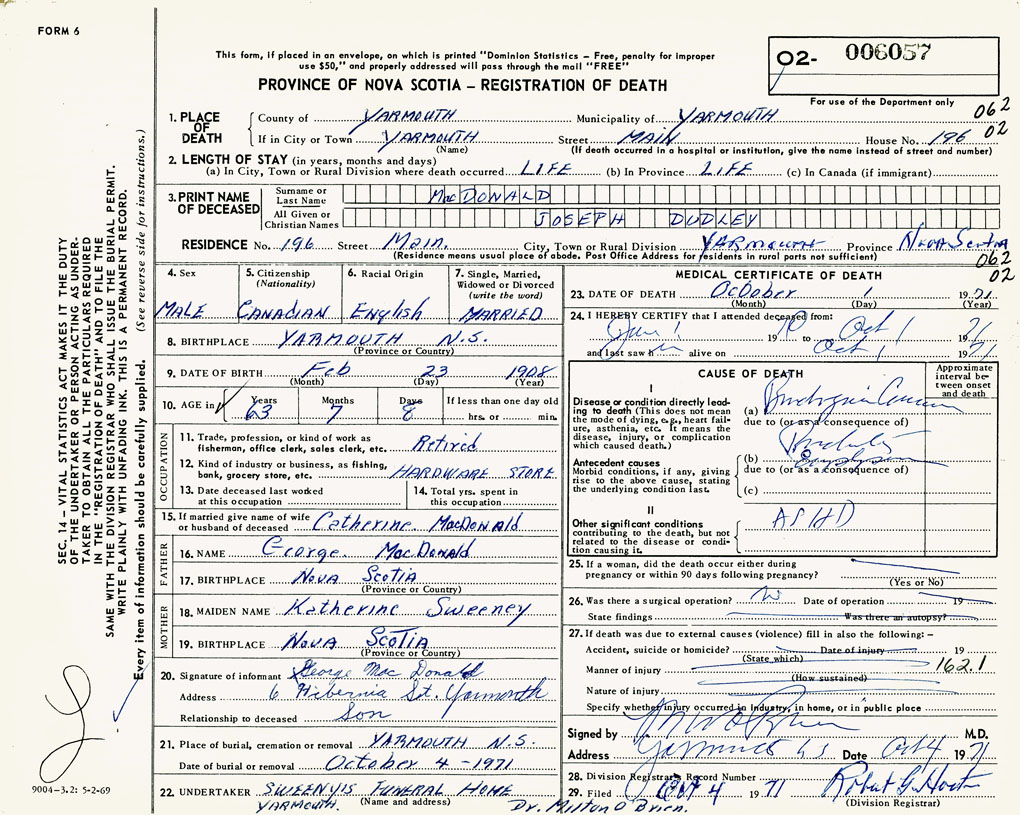 FORM 6
This form, if placed in an envelope, on which is printed "Dominion Statistics – Free, penalty for improper
use $50," and properly addressed will pass through the mail "FREE"
PROVINCE OF NOVA SCOTIA – REGISTRATION OF DEATH
O2- 006057
For use of the Department only
062
02
1. PLACE OF DEATH County of YARMOUTH Municipality of YARMOUTH
If in City or Town YARMOUTH Street MAIN House No. 196
(Name) (If death occurred in a hospital or institution, give the name instead of street and number)
2. LENGTH OF STAY (in years, months and days)
(a) In City, Town or Rural Division where death occurred LIFE (b) In Province LIFE (c) In Canada (if immigrant)
3. PRINT NAME OF DECEASED Surname or Last Name MacDONALD
All Given or Christian Names JOSEPH DUDLEY
RESIDENCE No. 196 Street Main. City, Town or Rural Division YARMOUTH Province NOVA Scotia
(Residence means usual place of abode. Post Office Address for residents in rural parts not sufficient)
062
02
4. Sex MALE
5. Citizenship (Nationality) CANADIAN
6. Racial Origin English
7. Single, Married, Widowed or Divorced (write the word) MARRIED
8. BIRTHPLACE YARMOUTH N.S.
(Province or Country)
9. DATE OF BIRTH Feb 23 1908
(Month) (Day) (Year)
10. AGE in Years 63 Months 7 Days 8 If less than one day old
hrs. or min.
OCCUPATION
11. Trade, profession, or kind of work as
fisherman, office clerk, sales clerk, etc. Retired
12. Kind of industry or business, as fishing,
bank, grocery store, etc. HARDWARE STORE
13. Date deceased last worked
at this occupation
14. Total yrs. spent in
this occupation
15. If married give name of wife
or husband of deceased Catherine MacDonald
FATHER
16. NAME George MacDonald
17. BIRTHPLACE Nova Scotia
(Province or Country)
MOTHER
18. MAIDEN NAME Katherine Sweeney
19. BIRTHPLACE Nova Scotia
(Province or Country)
20. Signature of informant George Mac Donald
Address 6 Hibernia St. Yarmouth
Relationship to deceased Son
21. Place of burial, cremation or removal YARMOUTH N.S.
Date of burial or removal October 4 - 1971
22. UNDERTAKER SWEENY'S FUNERAL HOME
YARMOUTH. (Name and address)
MEDICAL CERTIFICATE OF DEATH
23. DATE OF DEATH October 1 1971
(Month) (Day) (Year)
24. I HEREBY CERTIFY that I attended deceased from:
1 1970 to Oct 1 1971
and last saw h m alive on Oct 1 1971
CAUSE OF DEATH
Approximate interval between onset and death
I
Disease or condition directly leading to death (This does not mean the mode of dying, e.g., heart failure, asthenia, etc. It means the disease, injury, or complication which caused death.)
(a)
due to (or as a consequence of)
Antecedent causes
Morbid conditions, if any, giving rise to the above cause, stating the underlying condition last.
(b)
due to (or as a consequence of)
(c)
II
Other significant conditions
contributing to the death, but not related to the disease or condition causing it.
ASHD
25. If a woman, did the death occur either during
pregnancy or within 90 days following pregnancy?
(Yes or No)
26. Was there a surgical operation? Date of operation 19
State findings Was there an autopsy?
27. If death was due to external causes (violence) fill in also the following:–
Accident, suicide or homicide? Date of injury 19
(State which)
Manner of injury 162.1
(How sustained)
Nature of injury
Specify whether injury occurred in Industry, in home, or in public place
Signed by M.D.
Address Date Oct 4 1971
28. Division Registrar's Record Number
29. Filed Oct 4 1971
(Division Registrar)
Dr. Milton O Brien.
SEC. 14 – VITAL STATISTICS ACT MAKES IT THE DUTY
OF THE UNDERTAKER OR PERSON ACTING AS UNDER-
TAKER TO OBTAIN ALL THE PARTICULARS REQUIRED
IN THE "REGISTRATION OF DEATH" AND TO FILE THE
SAME WITH THE DIVISION REGISTRAR WHO SHALL ISSUE THE BURIAL PERMIT.
WRITE PLAINLY WITH UNFADING INK. THIS IS A PERMANENT RECORD.
Every item of information should be carefully supplied. (See reverse side for instructions.)
9004-3.2: 5-2-69